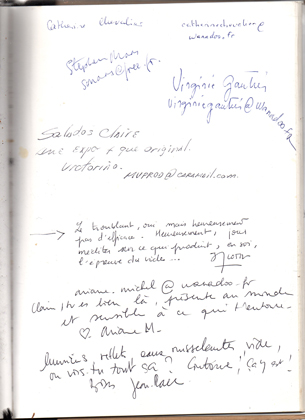 Catherine
wanadoo.fr
Stephen Mars
smars@free.fr
Virginie Gautier
virginiegautier@wanadoo.fr
Salados Claire
une expo + que original.
Victorino.
MVPROD@CARAMAIL.COM
Le troublant, oui mais heureusement
pas d'effroi. Heureusement, jour
méditer sur ce que produit, en soi,
l'épreuve du vide...
ariane.michel@wanadoo.fr
Clair, tu es bien là, présente au monde
et sensible à ce qui t'entoure.
♡ Ariane M-
lumières, reflets, eaux ruisselantes, vide,
où vois-tu tout ça ?
Bises Jean-Luc